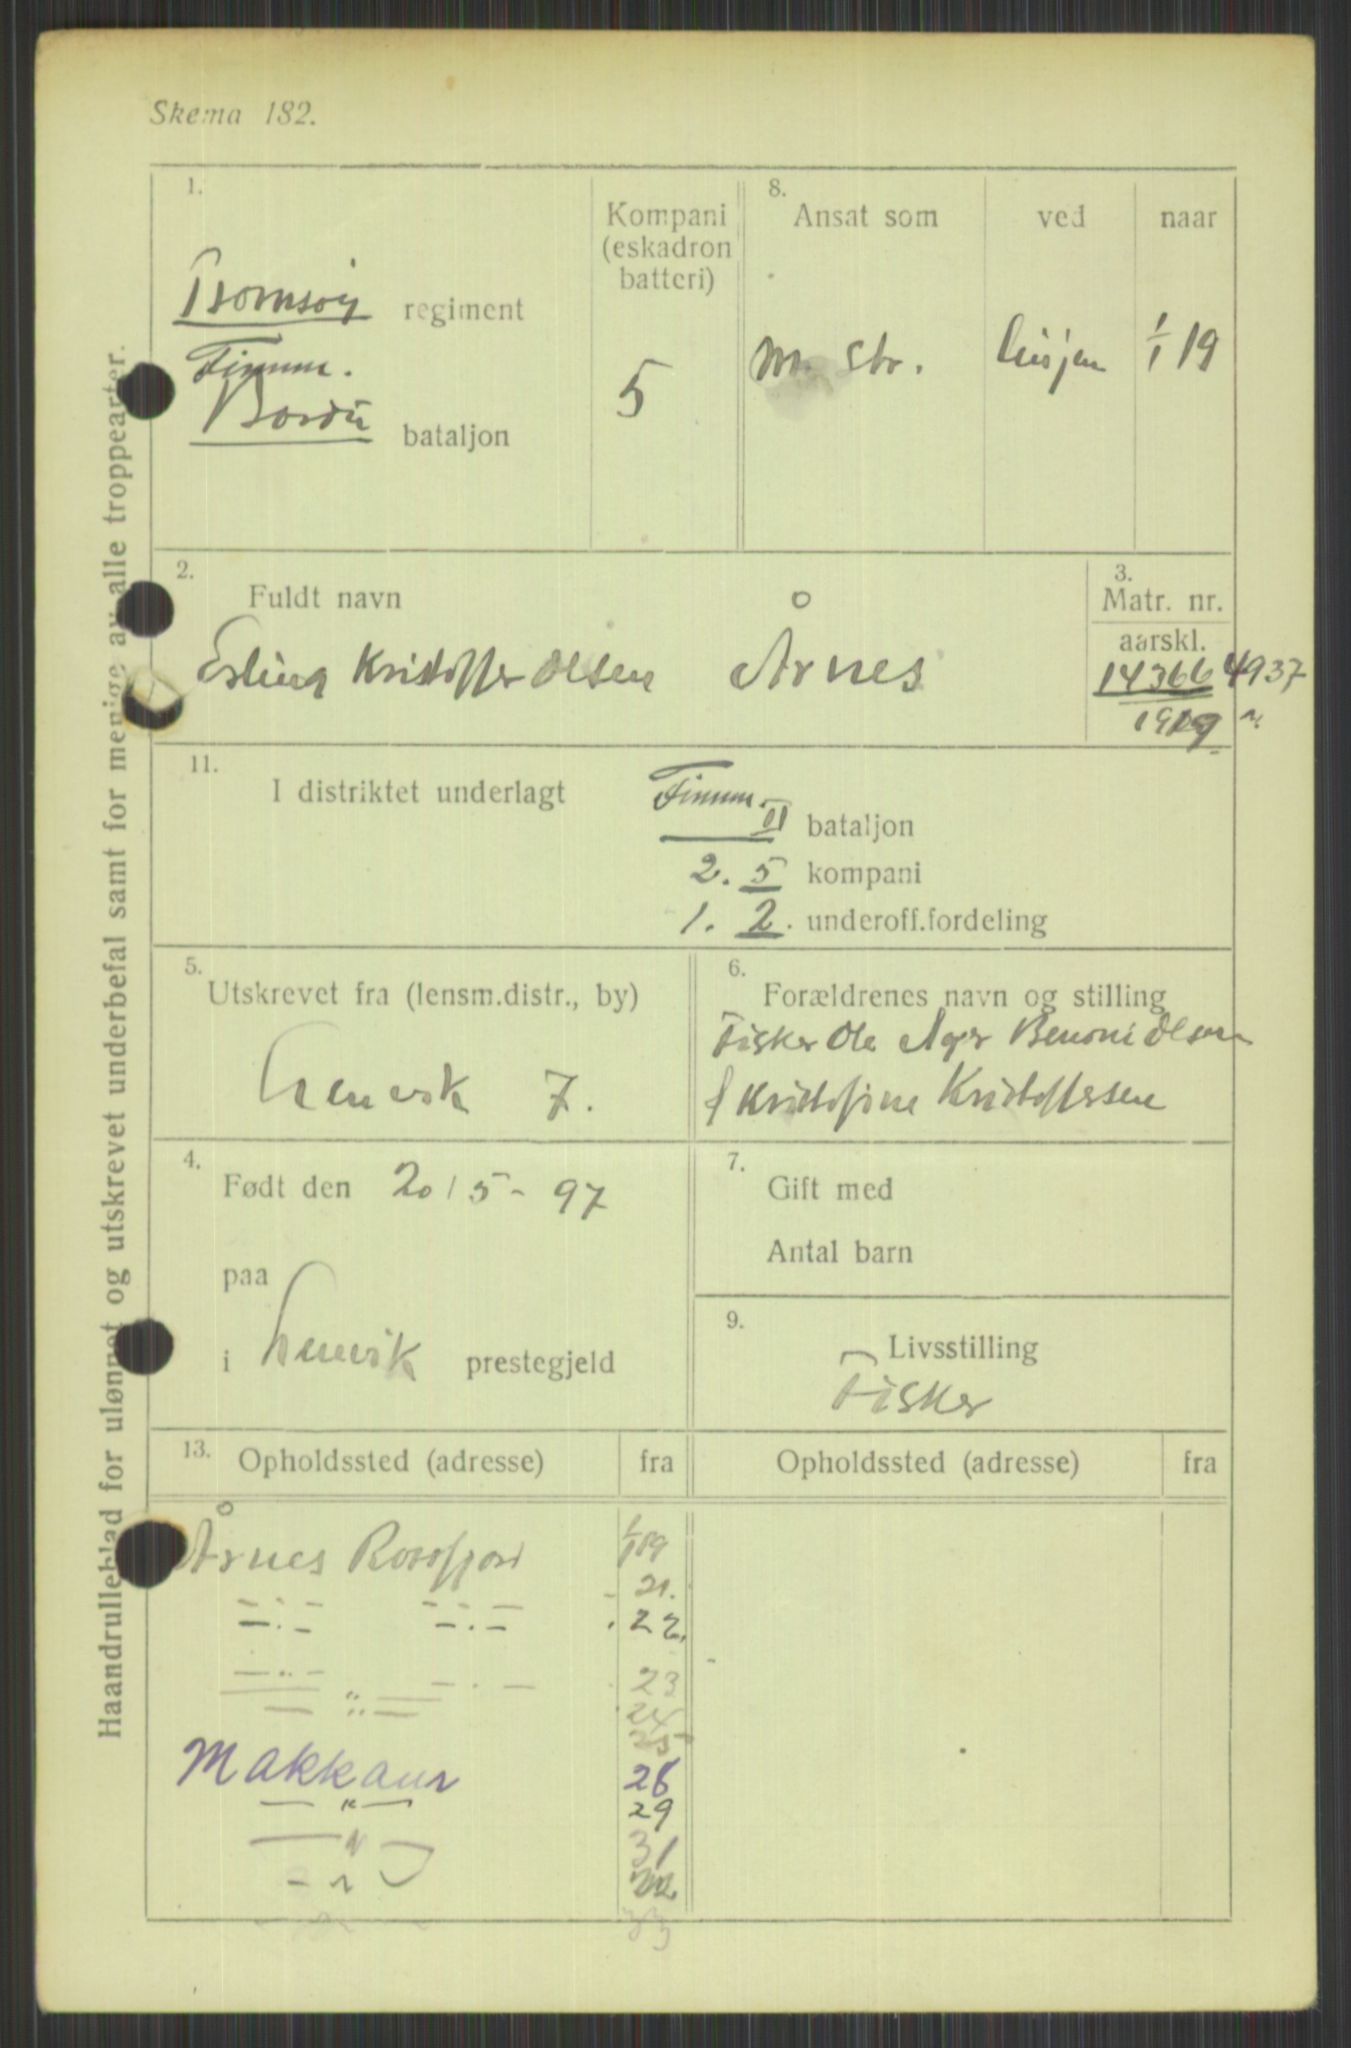 Skema 182.
Haandrulleblad for ulønnet og utskrevet underbefal samt for menige av alle troppearter.
1.
Tromsøy regiment
Finnm.
Bardu bataljon
Kompani
(eskadron
batteri)
5
8.
Ansat som
ved
naar
M. Str.
Linjen
1/1 19
2.
Fuldt navn
Erling Kristoffer Olsen Årnes
3.
Matr. nr.
aarskl.
14366 4937
1919
11.
I distriktet underlagt
Finnm. II bataljon
2. 5 kompani
1. 2. underoff.fordeling
5.
Utskrevet fra (lensm.distr., by)
Lenvik 7.
6.
Forældrenes navn og stilling
Fisker Ole Benoni Olsen
Kristoffersen
4.
Født den 20/5-97
paa
i Lenvik prestegjeld
7.
Gift med
Antal barn
9.
Livsstilling
Fisker
13.
Opholdssted (adresse)
fra
Opholdssted (adresse)
fra
Årnes Rossfjord 1/1 19
21.
-"- -"- 22.
-"- -"- 23
-"- 24
25
Makkaur 26
-"- 29
-"- 31
-"-
-"- 33